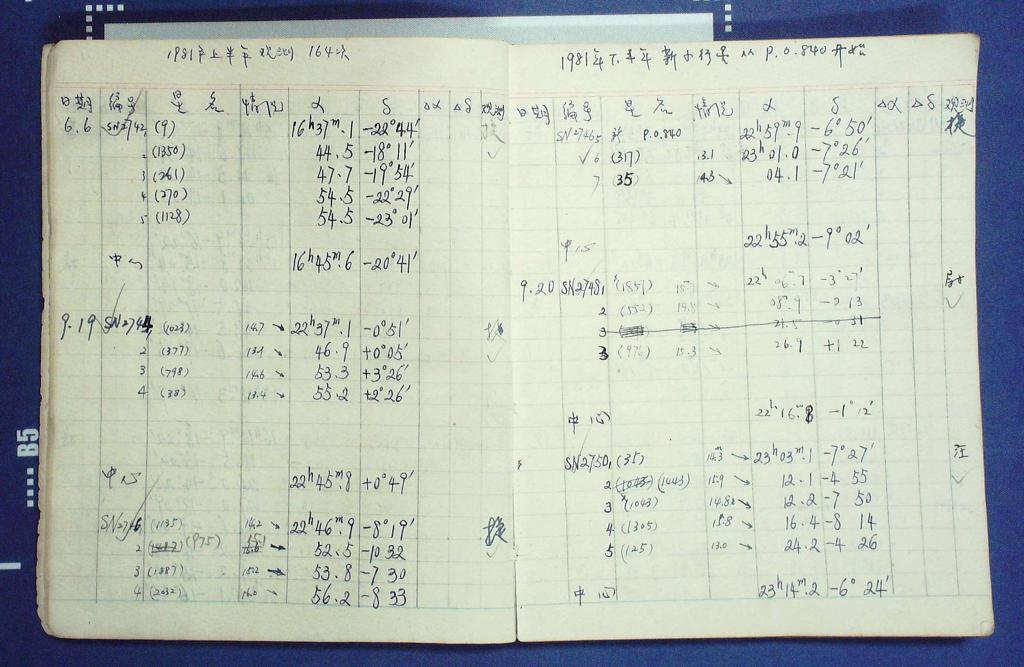 1981年上半年观测 164次
日期 编号 星名 情况 α δ Δα Δδ 观测
6.6 SN2742, (9) 16ʰ37ᵐ.1 -22°44′ 捷
2 (1350) 44.5 -18°11′
3 (261) 47.7 -19°54′
4 (270) 54.5 -22°29′
5 (1128) 54.5 -23°01′
中心 16ʰ45ᵐ.6 -20°41′
9.19 SN2744, (1023) 14.7 → 22ʰ37ᵐ.1 -0°51′ 捷
2 (377) 13.1 → 46.9 +0°05′
3 (798) 14.6 → 53.3 +3°26′
4 (38) 13.4 → 55.2 +2°26′
中心 22ʰ45ᵐ.8 +0°49′
SN2746, (1135) 14.2 → 22ʰ46ᵐ.9 -8°19′ 捷
2 (975) 15.1 → 52.5 -10 32
3 (1087) 15.2 → 53.8 -7 30
4 (2032) 16.0 → 56.2 -8 33
1981年下半年新小行星从 P.O.840 开始
日期 编号 星名 情况 α δ Δα Δδ 观测
SN27465 新 P.O.840 22ʰ59ᵐ.9 -6°50′ 捷
✓6 (317) 13.1 23ʰ01.0 -7°26′
7 (35) 14.3 → 04.1 -7°21′
中心 22ʰ55ᵐ.2 -9°02′
9.20 SN2748, (1851) 15.7 → 22ʰ06ᵐ.7 -3°27′
2 (552) 14.8 → 08.9 -0 13
3 21.5 -0 31
3 (976) 15.3 → 26.9 +1 22
中心 22ʰ16ᵐ.8 -1°12′
SN2750, (35) 14.3 → 23ʰ03ᵐ.1 -7°27′ 汪
2 (1043) (1443) 15.9 → 12.1 -4 55
3 (1043) 14.82 → 12.2 -7 50
4 (1305) 15.8 → 16.4 -8 14
5 (125) 13.0 → 24.2 -4 26
中心 23ʰ14ᵐ.2 -6°24′
B5